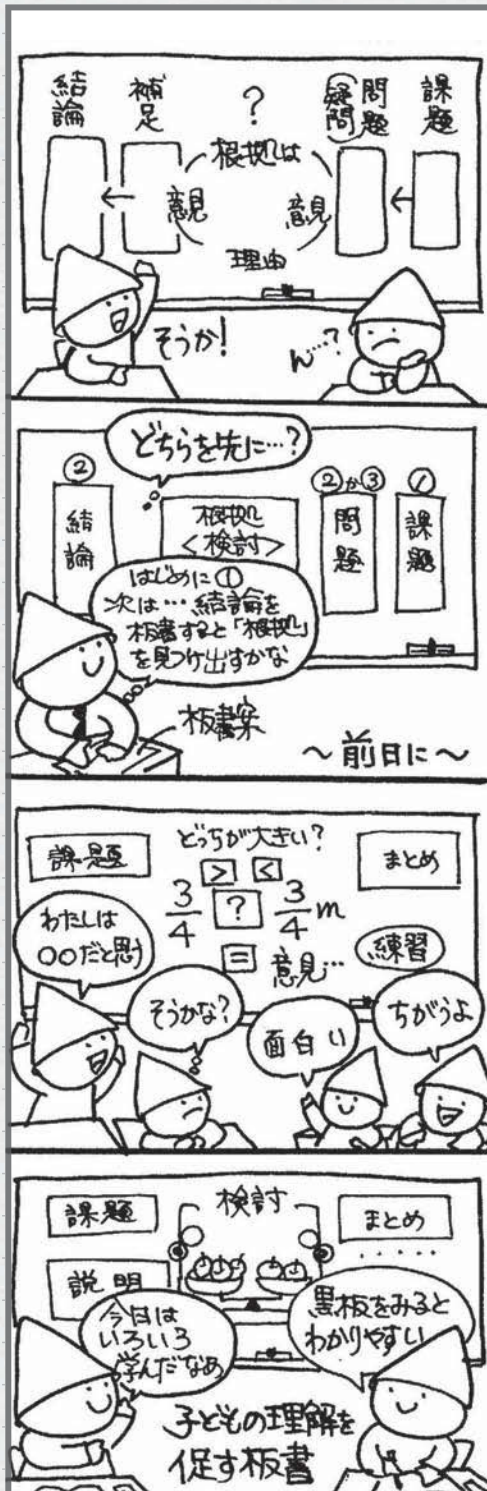 課題
問題
(疑問)
?
根拠は
意見
意見
理由
補足
結論
ん…?
そうか!
どちらを先に…?
①
課題
②か③
問題
根拠
<検討>
②
結論
はじめに①
次は…結論を
板書すると「根拠」
を見つけ出すかな
板書案
～前日に～
課題
どっちが大きい?
まとめ
> <
3/4 ? 3/4 m
=
意見…
練習
わたしは
○○だと思う
そうかな?
面白い
ちがうよ
課題
検討
まとめ
・・・・・
説明
今日は
いろいろ
学んだなぁ
黒板をみると
わかりやすい
子どもの理解を
促す板書